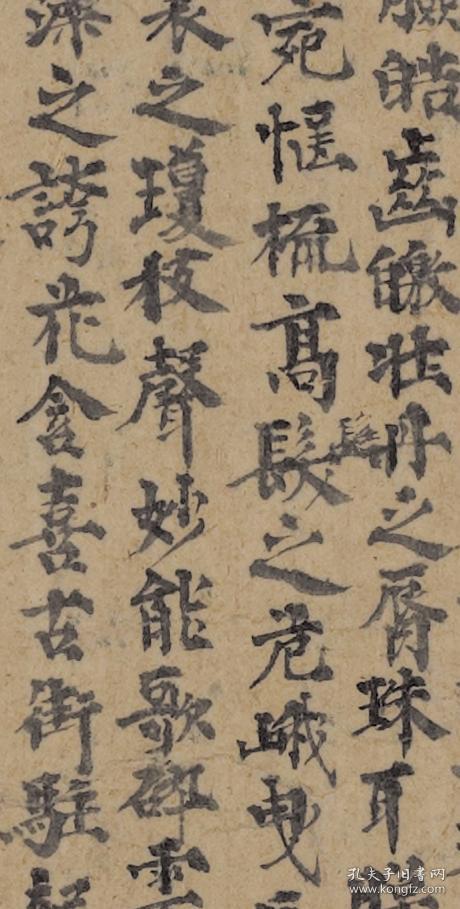 臉皓齒皦牡丹之脣珠耳
宛恇梳高髮髻之危峨曳
之瓊枝聲妙能歌碎雲
藻之誇花含喜古街駐
孔夫子旧书网
www.kongfz.com